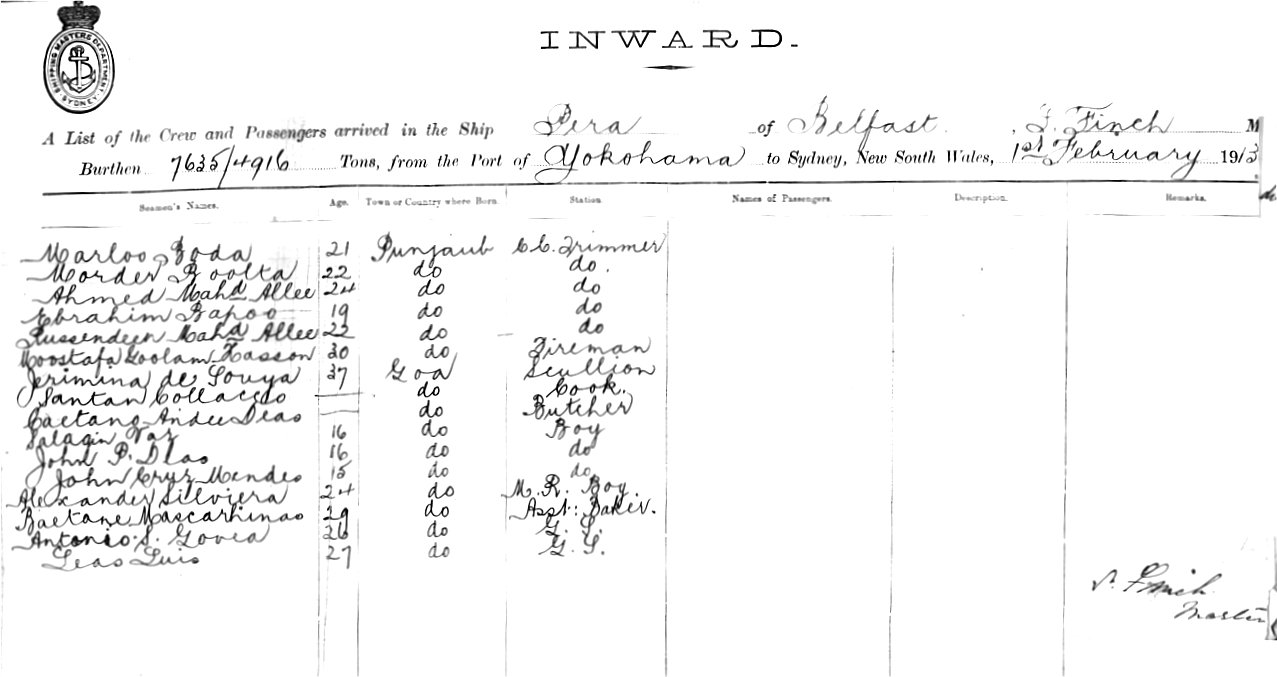 SHIPPING MASTERS DEPARTMENT SYDNEY
INWARD.
A List of the Crew and Passengers arrived in the Ship Pera of Belfast, F. Finch M
Burthen 7635/4916 Tons, from the Port of Yokohama to Sydney, New South Wales, 1st February 1913
Seamen's Names. Age. Town or Country where Born. Station Names of Passengers. Description. Remarks.
Marloo Boda 21 Punjaub C.C. Trimmer
Morder Boolta 22 do do.
Ahmed Mahd Allee 24 do do
Ebrahim Bapoo 19 do do
Russendeen Mahd Allee 22 do do
Moostafa Goolam Hasson 30 do Fireman
Jerimina de Souya 37 Goa Scullion
Santan Collacco do Cook.
Caetano Andee Deas do Butcher
Salagin Vaz 16 do Boy
John P. Dlas 16 do do
John Cruz Mendes 15 do do
Alexander Silviera 24 do M. R. Boy
Baetane Mascarhinas 29 do Asst: Baker.
Antonio S. Govea 26 do G. S.
Leas Luis 27 do G. S.
Finch
Master